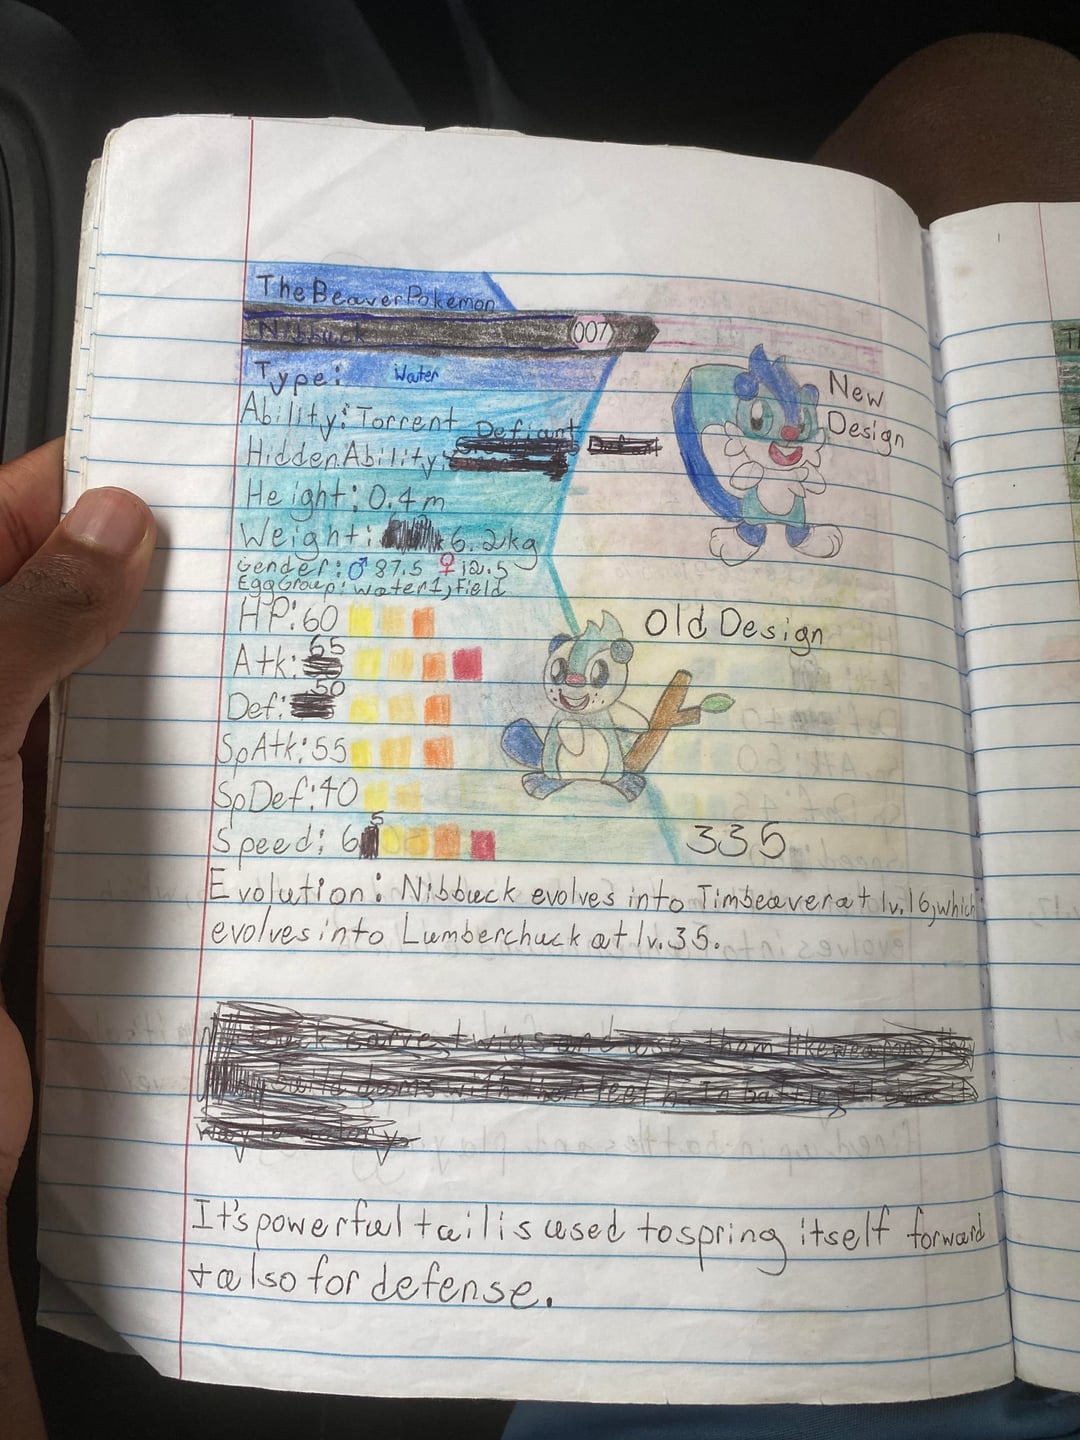 The Beaver Pokemon
Nibbuck 007
Type: Water
New
Design
Ability: Torrent
Hidden Ability: Defiant
Height: 0.4 m
Weight: 6.2kg
Gender: ♂ 87.5 ♀ 12.5
Egg Group: water 1, Field
HP: 60
Old Design
Atk: 65
Def: 50
SpAtk: 55
SpDef: 40
Speed: 65
335
Evolution: Nibbuck evolves into Timbeaver at lv. 16, which
evolves into Lumberchuck at lv. 35.
It's powerful tail is used to spring itself forward
+ also for defense.